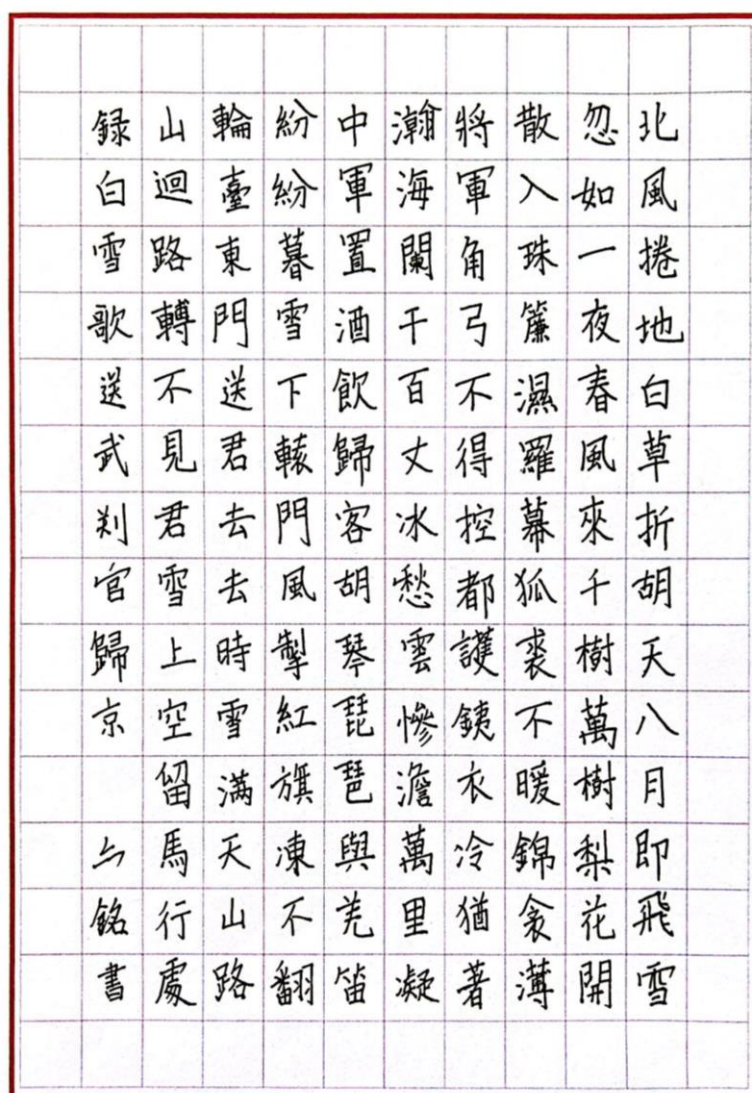 北風捲地白草折胡天八月即飛雪
忽如一夜春風來千樹萬樹梨花開
散入珠簾濕羅幕狐裘不暖錦衾薄
將軍角弓不得控都護銕衣冷猶著
瀚海闌干百丈冰愁雲慘澹萬里凝
中軍置酒飲歸客胡琴琵琶與羌笛
紛紛暮雪下轅門風掣紅旗凍不翻
輪臺東門送君去去時雪滿天山路
山迴路轉不見君雪上空留馬行處
録白雪歌送武判官歸京 銘書